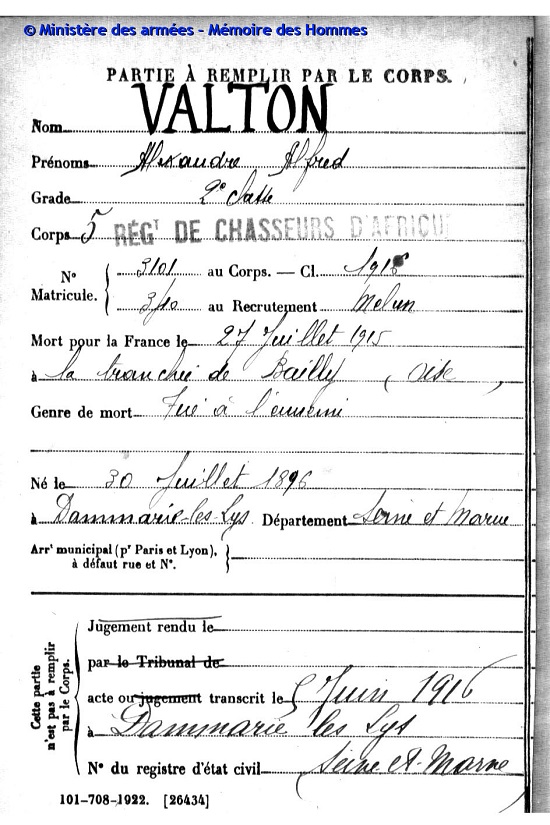 © Ministère des armées - Mémoire des Hommes
PARTIE À REMPLIR PAR LE CORPS.
Nom VALTON
Prénoms Alexandre Alfred
Grade 2e classe
Corps 5 RÉGT DE CHASSEURS D'AFRIQU
N° Matricule. { 3101 au Corps. — Cl. 1916
3/10 au Recrutement Melun
Mort pour la France le 27 Juillet 1915
à la tranchée de Bailly (Oise)
Genre de mort Tué à l'ennemi
Né le 30 Juillet 1896
à Dammarie-les-Lys Département Seine et Marne
Arrt municipal (pr Paris et Lyon),
à défaut rue et N°.
Cette partie n'est pas à remplir par le Corps.
Jugement rendu le
par le Tribunal de
acte ou jugement transcrit le 5 Juin 1916
à Dammarie les Lys
N° du registre d'état civil Seine et Marne
101-708-1922. [26434]